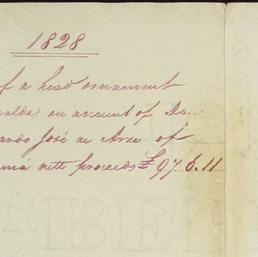 1828
of a head ornament
on account of Don
José de Arze of
nett proceeds £97.6.11